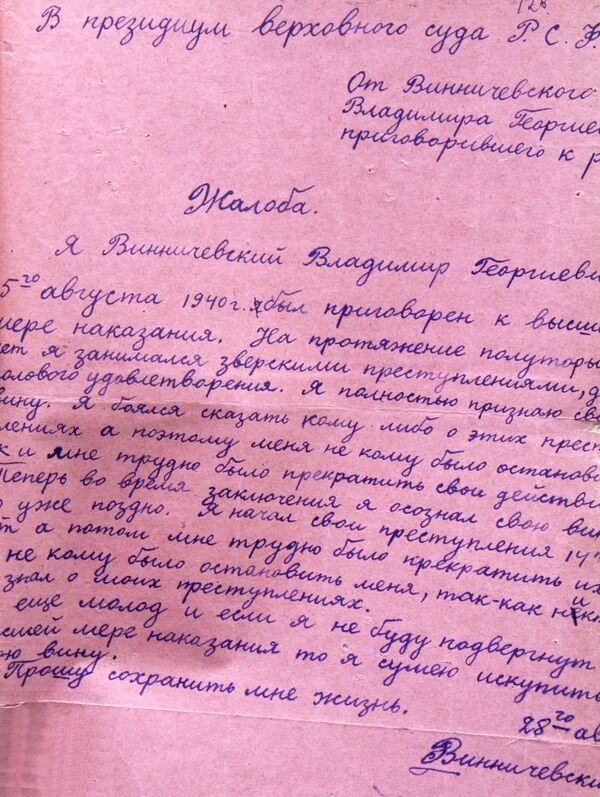 128
В президиум верховного суда Р.С.Ф.
От Винничевского
Владимира Георгие
приговорившего к р
Жалоба.
Я Винничевский Владимир Георгиеви
5го августа 1940г. был приговорен к высш
мере наказания. На протяжение полуторы
ет я занимался зверскими преступлениями, д
олового удовлетворения. Я полностью признаю св
вину. Я боялся сказать кому либо о этих прест
лениях а поэтому меня не кому было останови
к и мне трудно было прекратить свои действи
Теперь во время заключения я осознал свою вин
о уже поздно. Я начал свои преступления 14
т а потом мне трудно было прекратить их
не кому было остановить меня, так-как никт
знал о моих преступлениях.
еще молод и если я не буду подвергнут
сшей мере наказания то я сумею искупить
ою вину.
Прошу сохранить мне жизнь.
28го ав
Винничевски